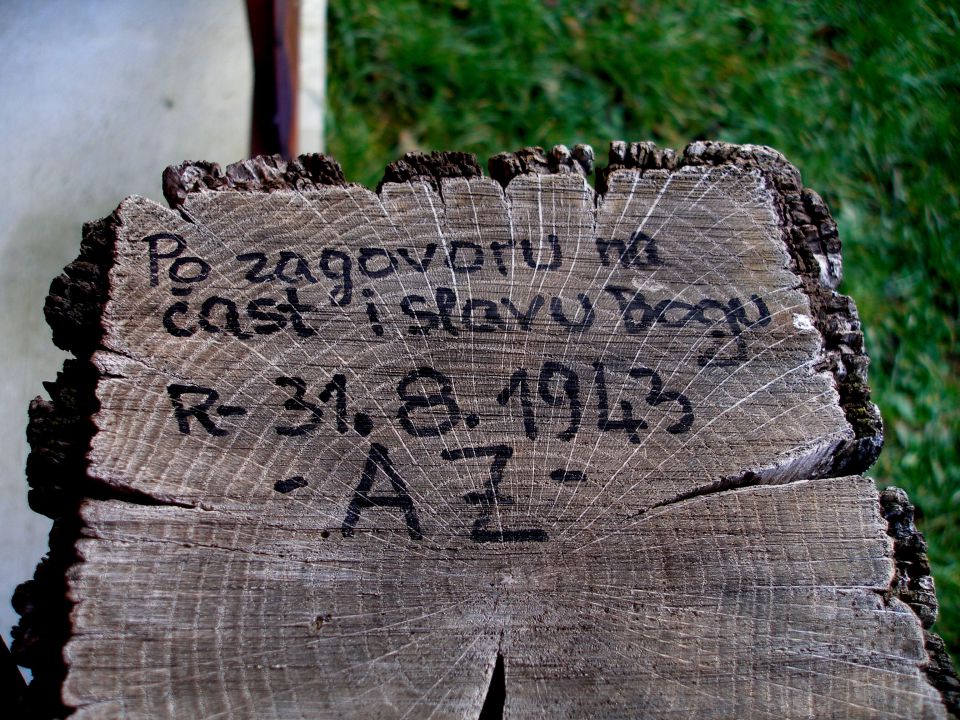 Po zagovoru na
čast i slavu Bogu
R- 31. 8. 1943
- A Z -